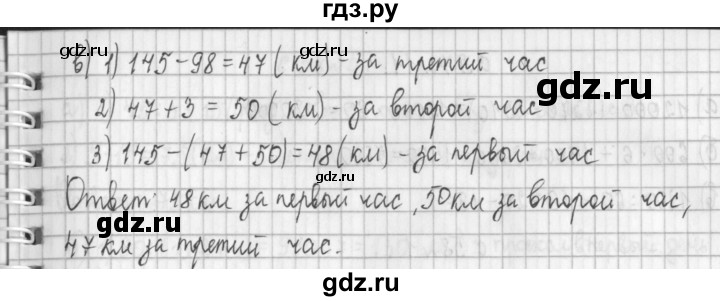 гдз.ру
в) 1) 145 - 98 = 47 (км) - за третий час
gdz.ru
2) 47 + 3 = 50 (км) - за второй час
3) 145 - (47 + 50) = 48 (км) - за первый час
gdz.ru
Ответ: 48 км за первый час, 50 км за второй час,
47 км за третий час.
gdz.ru
gdz.ru